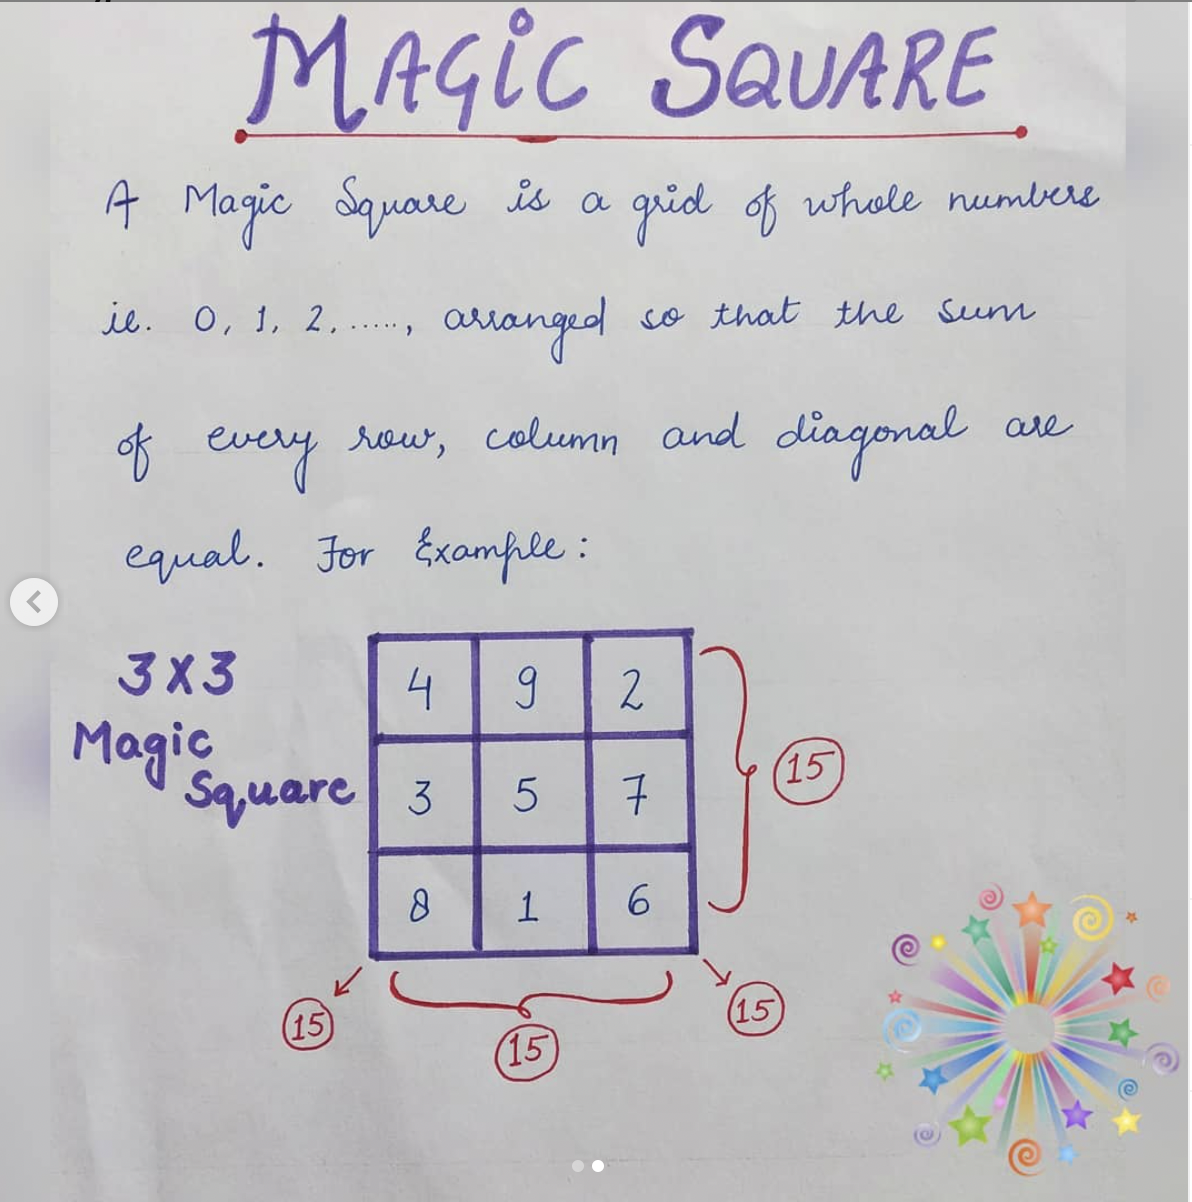 MAGIC SQUARE
A Magic Square is a grid of whole numbers
ie. 0, 1, 2, ....., arranged so that the sum
of every row, column and diagonal are
equal. For Example:
3X3
Magic
Square
4 9 2
3 5 7
8 1 6
15
15
15
15